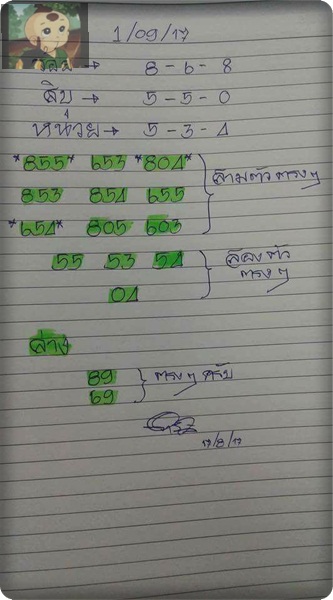 1/09/17
ร้อย → 8 - 6 - 8
สิบ → 5 - 5 - 0
หน่วย → 5 - 3 - 4
*855* 653 *804*
853 854 655 สามตัวตรงๆ
*654* 805 603
55 53 54 สองตัว
04 ตรงๆ
ล่าง
89 ตรงๆ ครับ
69
17/8/17